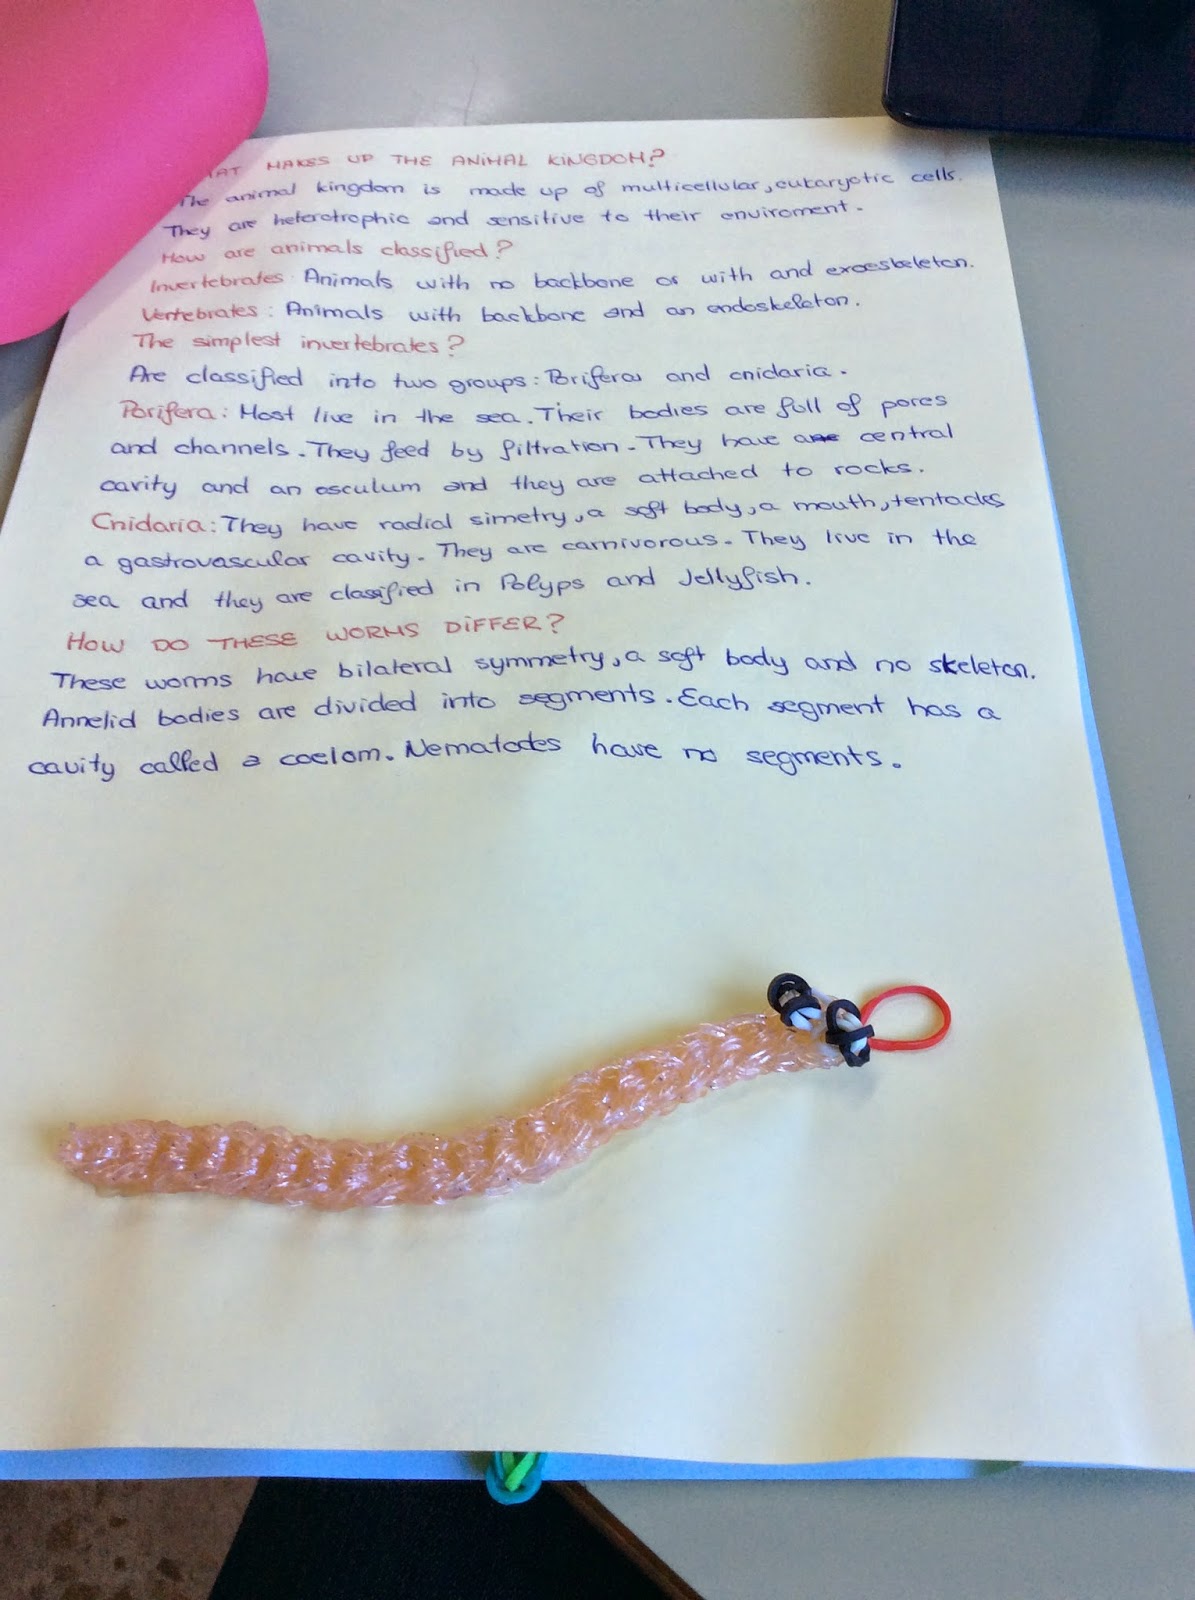 AT MAKES UP THE ANIMAL KINGDOM?
The animal kingdom is made up of multicellular, eukaryotic cells.
They are heterotrophic and sensitive to their enviroment.
How are animals classified?
Invertebrates: Animals with no backbone or with and exoeskeleton.
Vertebrates: Animals with backbone and an endoskeleton.
The simplest invertebrates?
Are classified into two groups: Porifera and cnidaria.
Porifera: Most live in the sea. Their bodies are full of pores
and channels. They feed by filtration. They have a central
cavity and an osculum and they are attached to rocks.
Cnidaria: They have radial simetry, a soft body, a mouth, tentacles
a gastrovascular cavity. They are carnivorous. They live in the
sea and they are classified in Polyps and Jellyfish.
HOW DO THESE WORMS DIFFER?
These worms have bilateral symmetry, a soft body and no skeleton.
Annelid bodies are divided into segments. Each segment has a
cavity called a coelom. Nematodes have no segments.